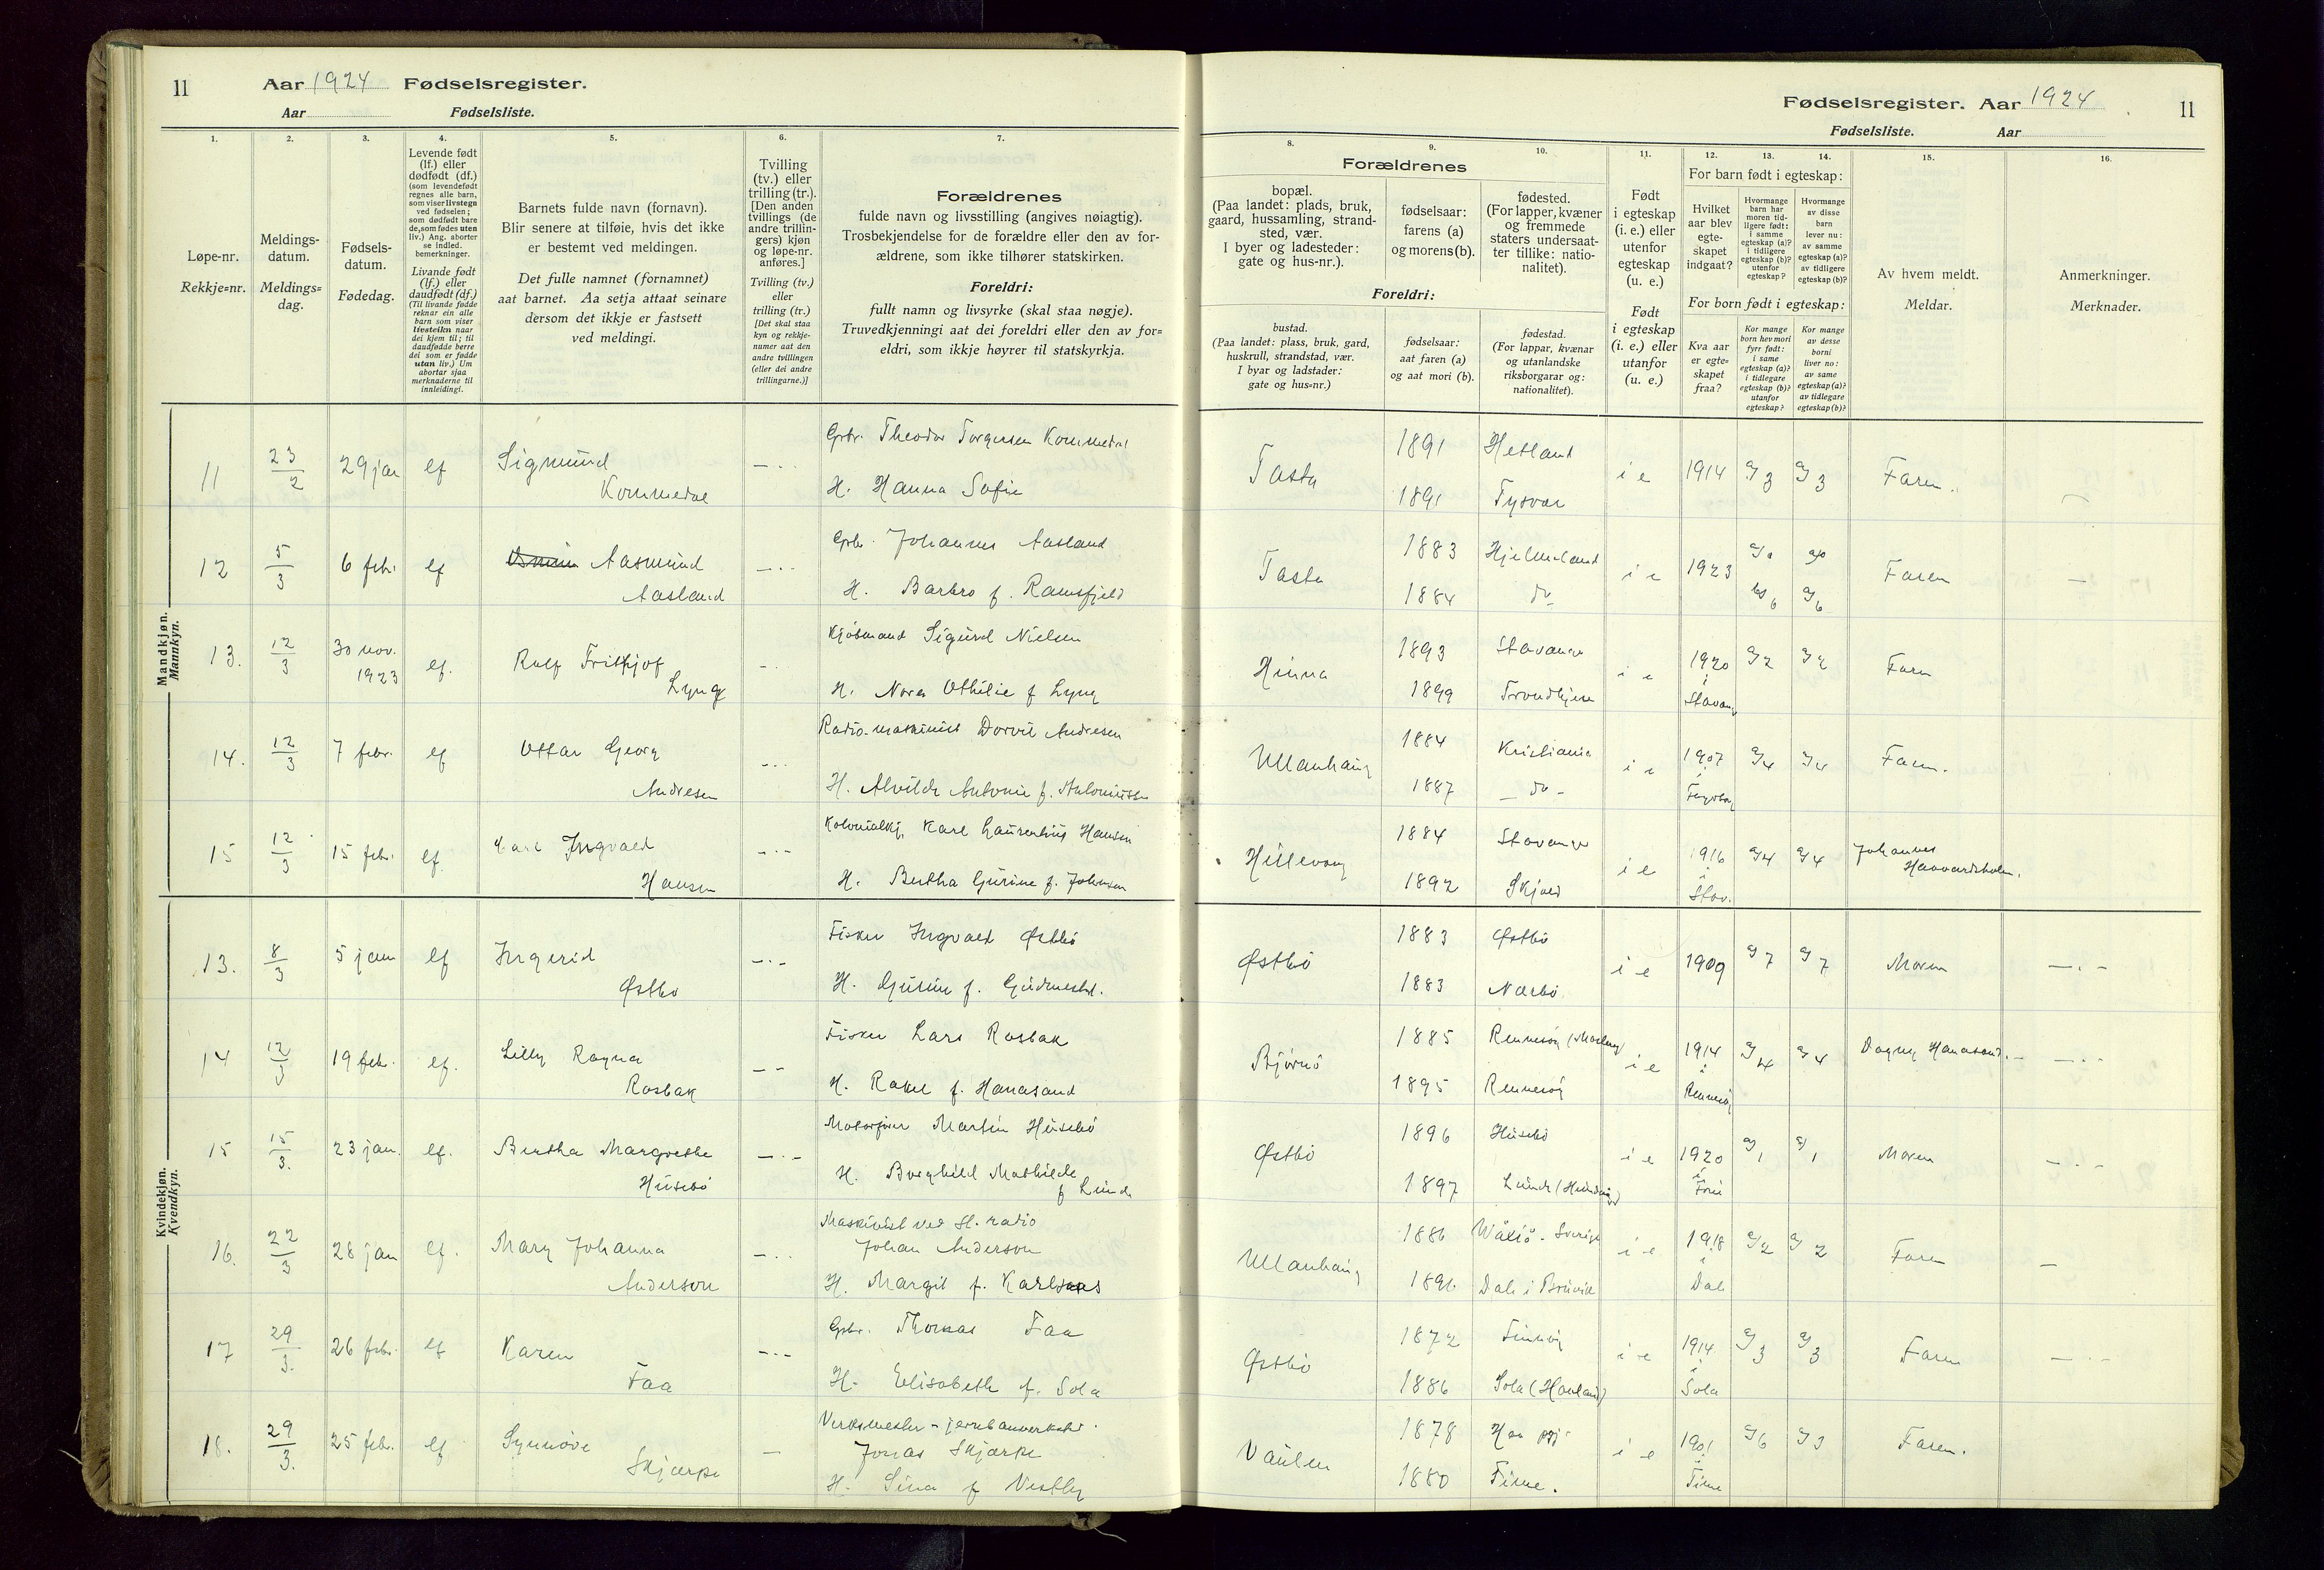 11 Aar 1924 Fødselsregister.
Aar Fødselsliste.
1. 2. 3. 4. 5. 6. 7.
Løpe-nr.
Rekkje=nr.
Meldings-
datum.
Meldings=
dag.
Fødsels-
datum.
Fødedag.
Levende født
(lf.) eller
dødfødt (df.)
(som levendefødt
regnes alle barn,
som viser livstegn
ved fødselen;
som dødfødt bare
de, som fødes uten
liv.) Ang. aborter
se indled.
bemerkninger.
Livande født
(lf.) eller
daudfødt (df.)
(Til livande fødde
reknar ein alle
barn som viser
livsteikn naar
dei kjem til; til
daudfødde berre
dei som er fødde
utan liv.) Um
abortar sjaa
merknaderne til
innleidingi.
Barnets fulde navn (fornavn).
Blir senere at tilføie, hvis det ikke
er bestemt ved meldingen.
Det fulle namnet (fornamnet)
aat barnet. Aa setja attaat seinare
dersom det ikkje er fastsett
ved meldingi.
Tvilling
(tv.) eller
trilling (tr.).
[Den anden
tvillings (de
andre trillin-
gers) kjøn
og løpe-nr.
anføres.]
Tvilling (tv.)
eller
trilling (tr.)
[Det skal staa
kyn og rekkje-
numer aat den
andre tvillingen
(eller dei andre
trillingarne.)]
Forældrenes
fulde navn og livsstilling (angives nøiagtig).
Trosbekjendelse for de forældre eller den av for-
ældrene, som ikke tilhører statskirken.
Foreldri:
fullt namn og livsyrke (skal staa nøgje).
Truvedkjenningi aat dei foreldri eller den av for=
eldri, som ikkje høyrer til statskyrkja.
Mandkjøn.
Mannkyn.
11 23/2 29 jan lf Sigmund Kommedal
Gbr. Theodor Torgersen Kommedal
H. Hanna Sofie
12 5/3 6 febr. lf Aasmund Aasland
Gbr. Johannes Aasland
H. Barbro f. Ramsfjeld
13. 12/3 30 nov. 1923 lf. Rolf Frithjof Lyng
Kjøbmand Sigurd Nielsen
H. Nora Othilie f Lyng
14. 12/3 7 febr. lf Ottar Georg Andresen
Radio-maskinist Andresen
H. Alvilde Antonie f. Antoniussen
15 12/3 15 febr. lf Karl Ingvald Hansen
Kolonialkj. Karl Laurentius Hansen
H. Bertha Gurine f. Johnsen
Kvindekjøn.
Kvendkyn.
13. 8/3 5 jan lf Ingerid Østbø
Fisker Ingvald Østbø
H. Gurine f. Gudmestad.
14 12/3 19 febr. lf. Lilly Ragna Rosbak
Fisker Lars Rosbak
H. Rakel f. Hanasand
15 15/3. 23 jan. lf. Bertha Margrethe Husebø
Motorfører Martin Husebø
H. Borghild Mathilde f Lunde
16. 22/3 28 jan lf. Mary Johanna Anderson
Maskinist ved St. radio
Johan Anderson
H. Margit f. Karlsens
17 29/3. 26 febr. lf Karen Faa
Gbr. Thomas Faa
H. Elisabeth f. Sola
18. 29/3. 25 feb. lf Synnøve Skjærpe
Verksmester - jernbaneverkstd.
Jonas Skjærpe
H. Sina f Vestly
Fødselsregister. Aar 1924 11
Fødselsliste. Aar
8. 9. 10. 11. 12. 13. 14. 15. 16.
Forældrenes
bopæl.
(Paa landet: plads, bruk,
gaard, hussamling, strand-
sted, vær.
I byer og ladesteder:
gate og hus-nr.).
fødselsaar:
farens (a)
og morens (b).
fødested.
(For lapper, kvæner
og fremmede
staters undersaat-
ter tillike: natio-
nalitet).
Foreldri:
bustad.
(Paa landet: plass, bruk, gard,
huskrull, strandstad, vær.
I byar og ladstader:
gate og hus=nr.)
fødselsaar:
aat faren (a)
og aat mori (b).
fødestad.
(For lappar, kvænar
og utanlandske
riksborgarar og:
nationalitet).
Født
i egteskap
(i. e.) eller
utenfor
egteskap
(u. e.)
Født
i egteskap
(i. e.) eller
utanfor
(u. e.)
For barn født i egteskap:
Hvilket
aar blev
egte-
skapet
indgaat?
Hvormange
barn har
moren tid-
ligere født:
i samme
egteskap (a)?
i tidligere
egteskap (b)?
utenfor
egteskap?
Hvormange
av disse
barn
lever nu:
av samme
egteskap (a)?
av tidligere
egteskap (b)?
For born født i egteskap:
Kva aar
er egte=
skapet
fraa?
Kor mange
born hev mori
fyrr født:
i same
egteskap (a)?
i tidlegare
egteskap (b)?
utanfor
egteskap?
Kor mange
av desse
borni
liver no:
av same
egteskap (a)?
av tidlegare
egteskap (b)?
Av hvem meldt.
Meldar.
Anmerkninger.
Merknader.
Tasta 1891 Hetland i e 1914 a/3 a/3 Faren.
1891 Tysvær
Tasta 1883 Hjelmeland i e 1923 Faren —
1884 do b/6
Hinna 1893 Stavanger i e 1920 i Stavang a/2 a/2 Faren
1899 Trondhjem
Ullanhaug 1884 Kristiania i e 1907 i a/4 a/4 Faren.
1887 - do -
Hillevåg 1884 Stavanger i e 1916 i Stav. a/4 a/4 Johannes Haavardsholm.
1892 Skjold
Østbø 1883 Østbø i e 1909 a/7 a/7 Moren —.-
1883 Nærbø
Bjørnø 1885 Rennesøy i e 1914 i Rennesøy a/4 a/4 Dagny Hanasand.
1895 Rennesøy
Østbø 1896 Husebø i e 1920 i a/1 a/1 Moren —.-
1897 Lunde
Ullanhaug 1886 Wäxiö - Sverige i e 1918 i Dale a/2 a/2 Faren —
1896 Dale i Bruvik
Østbø 1872 Finnøy i e 1914 i Sola a/3 a/3 Faren
1886 Sola (Haaland)
Vaulen 1878 Haa i e 1901 i Time a/6 Faren.
1880 Time.